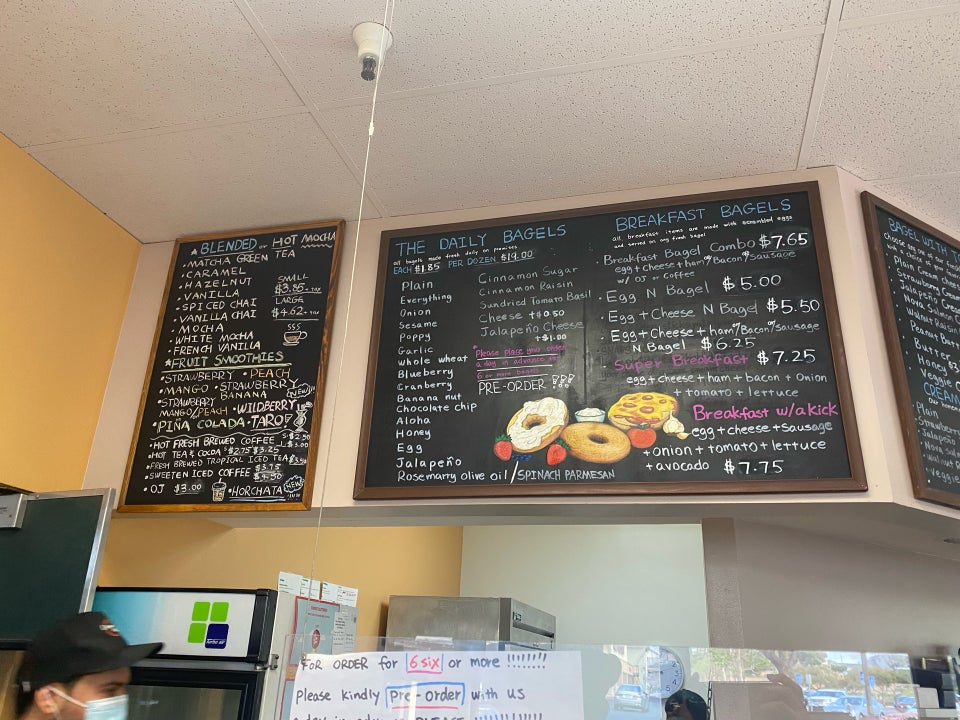 ★BLENDED or HOT MOCHA
• MATCHA GREEN TEA
• CARAMEL
• HAZELNUT
• VANILLA
• SPICED CHAI
• VANILLA CHAI
• MOCHA
• WHITE MOCHA
• FRENCH VANILLA
SMALL
$3.85 + TAX
LARGE
$4.62 + TAX
★FRUIT SMOOTHIES
• STRAWBERRY • PEACH
• MANGO • STRAWBERRY
• STRAWBERRY BANANA
NEW
MANGO/PEACH • WILDBERRY
PIÑA COLADA • TARO
• HOT FRESH BREWED COFFEE S: $2.50
L: $3.00
• HOT TEA & COCOA $2.75 $3.25
• FRESH BREWED TROPICAL ICED TEA
• SWEETEN ICED COFFEE $3.75
$4.50
• OJ $3.00
• HORCHATA NEW
THE DAILY BAGELS
all bagels made fresh daily on premises
EACH $1.85 PER DOZEN $19.00
Plain
Everything
Onion
Sesame
Poppy
Garlic
Whole wheat
Blueberry
Cranberry
Banana nut
Chocolate chip
Aloha
Honey
Egg
Jalapeño
Rosemarry olive oil / SPINACH PARMESAN
Cinnamon Sugar
Cinnamon Raisin
Sundried Tomato Basil
Cheese +$0.50
Jalapeño Cheese
+$1.00
*Please place your order
a day in advance for
6 or more bagels
PRE-ORDER !!!
BREAKFAST BAGELS
all breakfast items are made with scrambled eggs
and served on any fresh bagel
• Breakfast Bagel Combo $7.65
egg + Cheese + ham or/Bacon or/Sausage
w/ OJ or Coffee
• Egg N Bagel $5.00
• Egg + Cheese N Bagel $5.50
• Egg + Cheese + ham or/Bacon or/Sausage
N Bagel $6.25
Super Breakfast $7.25
egg + cheese + ham + bacon + Onion
+ tomato + lettuce
Breakfast w/a kick
egg + cheese + Sausage
+ onion + tomato + lettuce
+ avocado $7.75
BAGEL WITH
Choose any of our
Plain Cream
Strawberry
Jalapeño
Nova Salmon
Walnut Raisin
Peanut Butter
Butter
• Honey
• Veggie
CREAM
Plain
Strawberry
Jalapeño
Nova Salmon
Walnut
• Veggie
turbo air
FOR ORDER for 6 six or more !!!!!!!
Please kindly Pre-order with us
a day in advance PLEASE !!!!!!!!!!